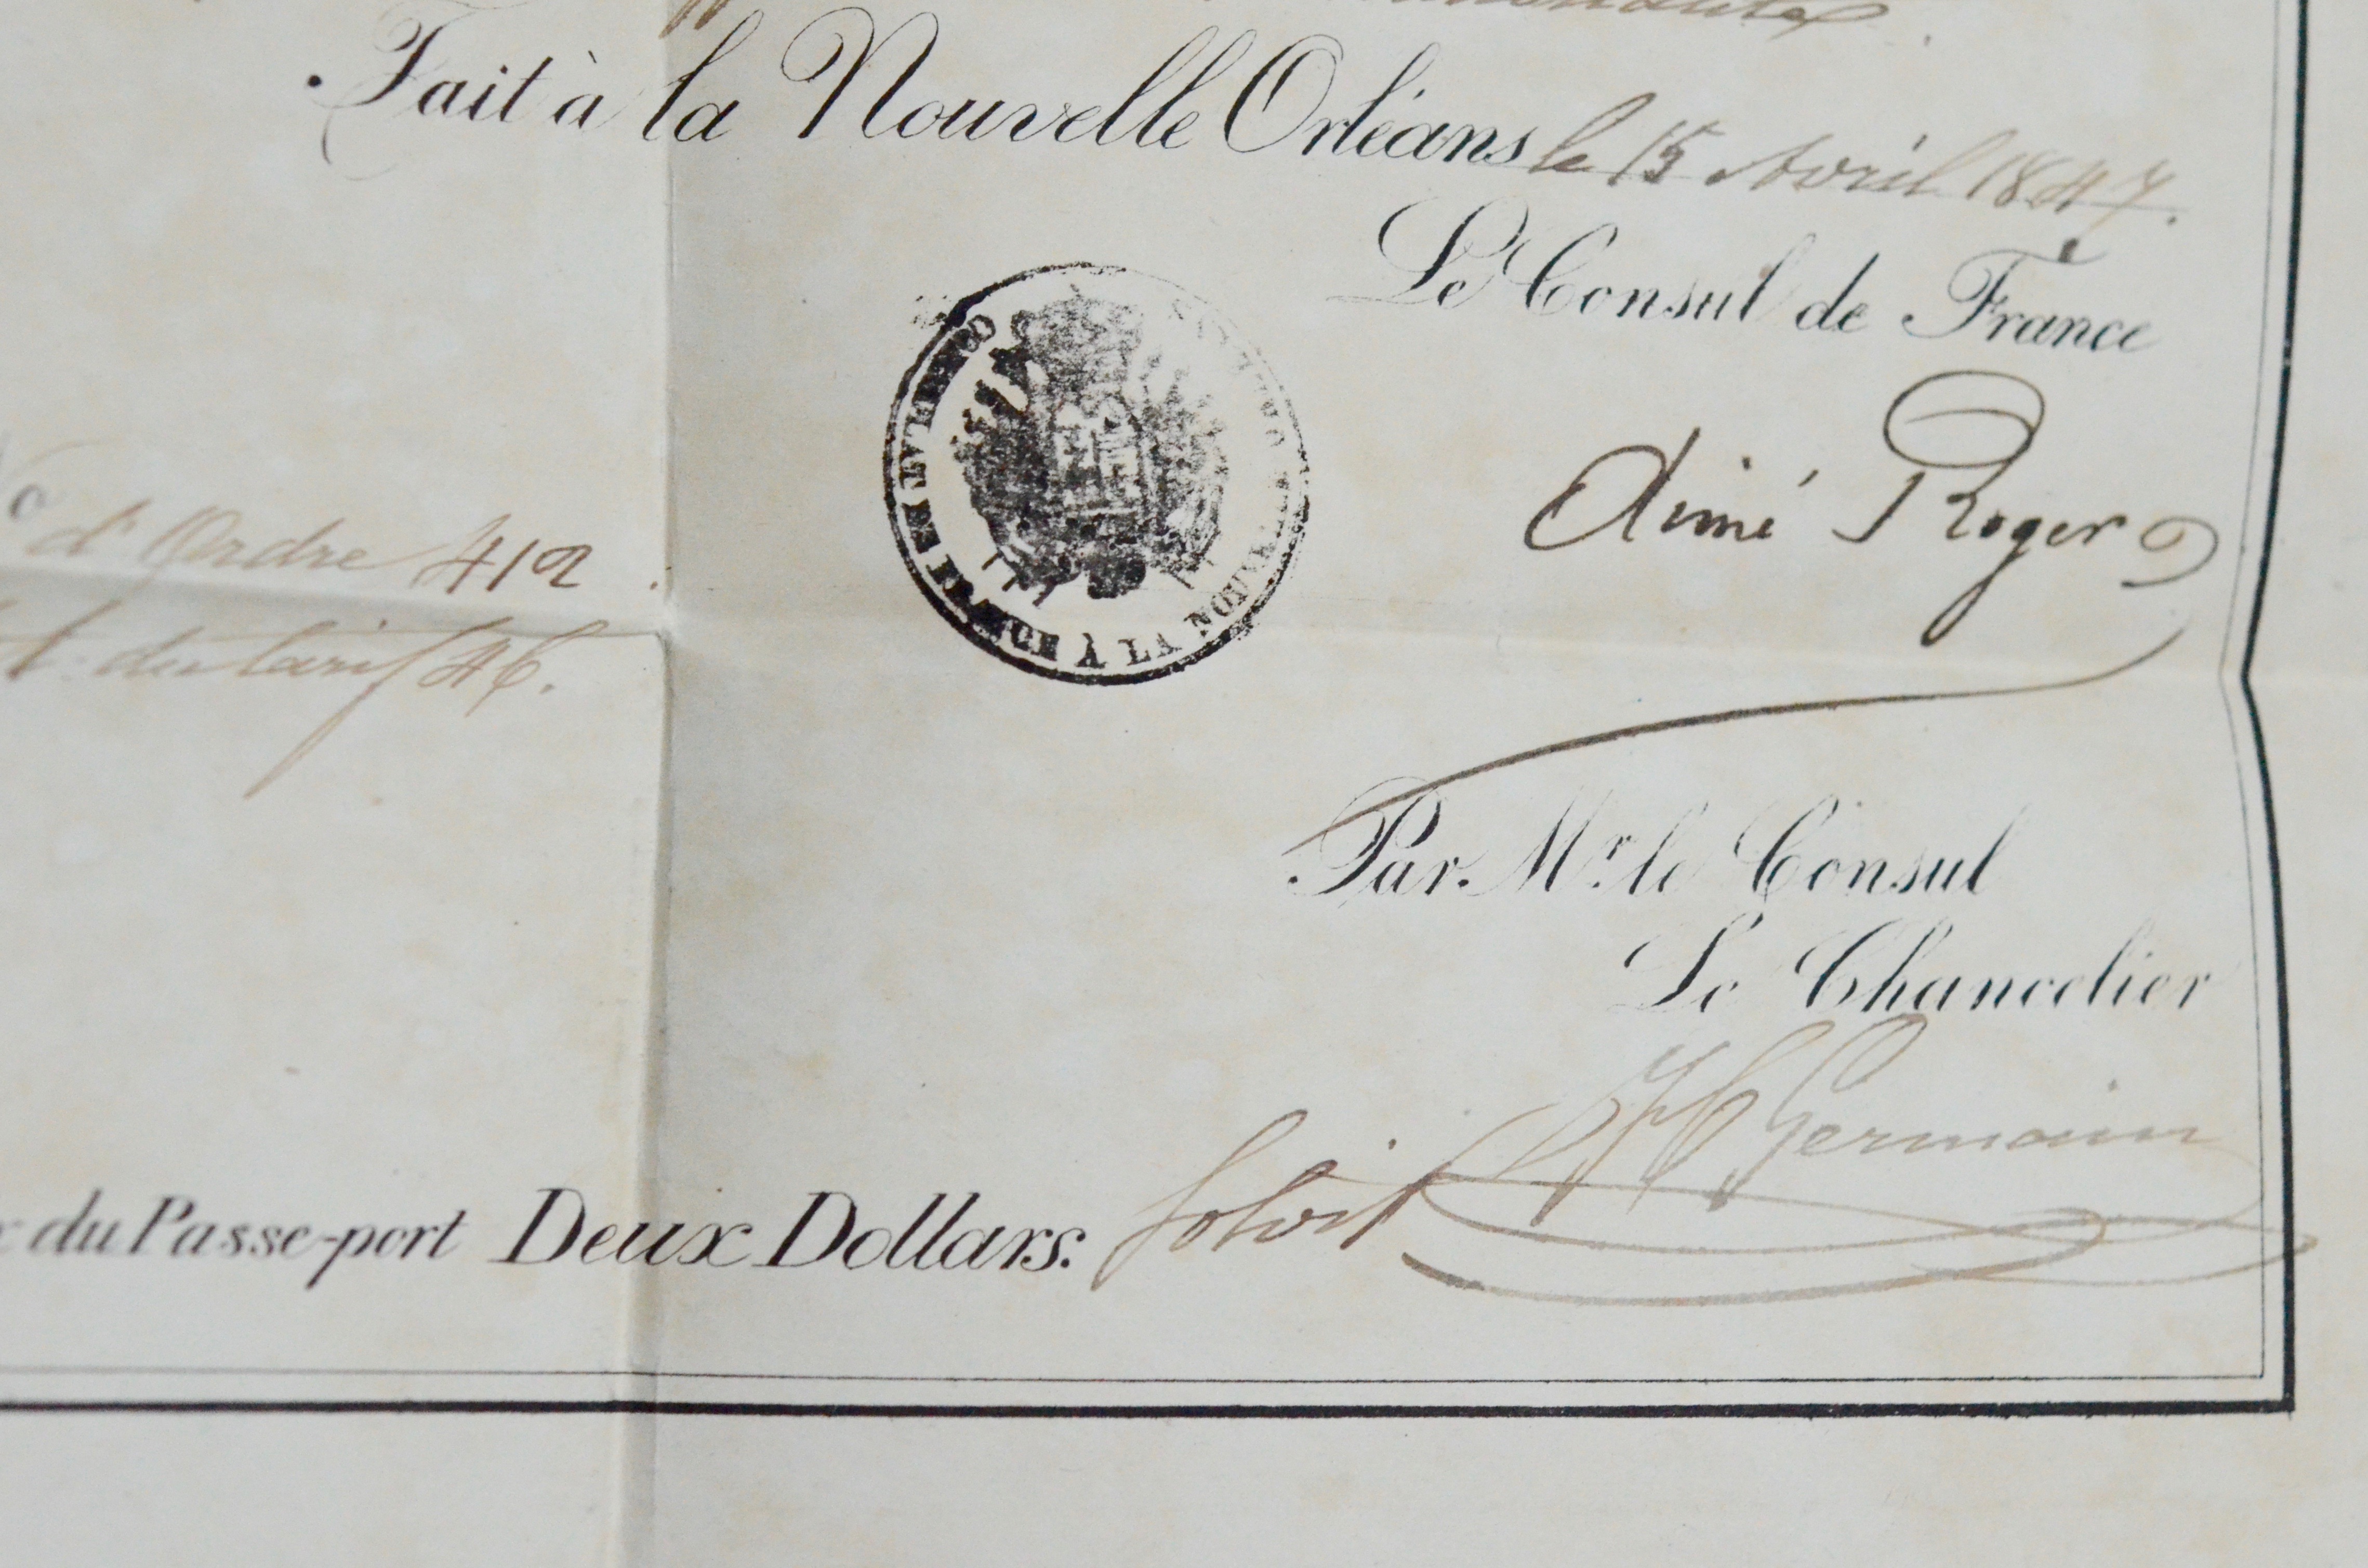 Fait à la Nouvelle Orléans le 15 Avril 1847.
Le Consul de France
CONSULAT DE FRANCE À LA NOUVELLE ORLÉANS
Aimé Roger
No d'Ordre 412.
t. du tarif 46.
Par Mr. le Consul
Le Chancelier
Germain
du Passe-port Deux Dollars.